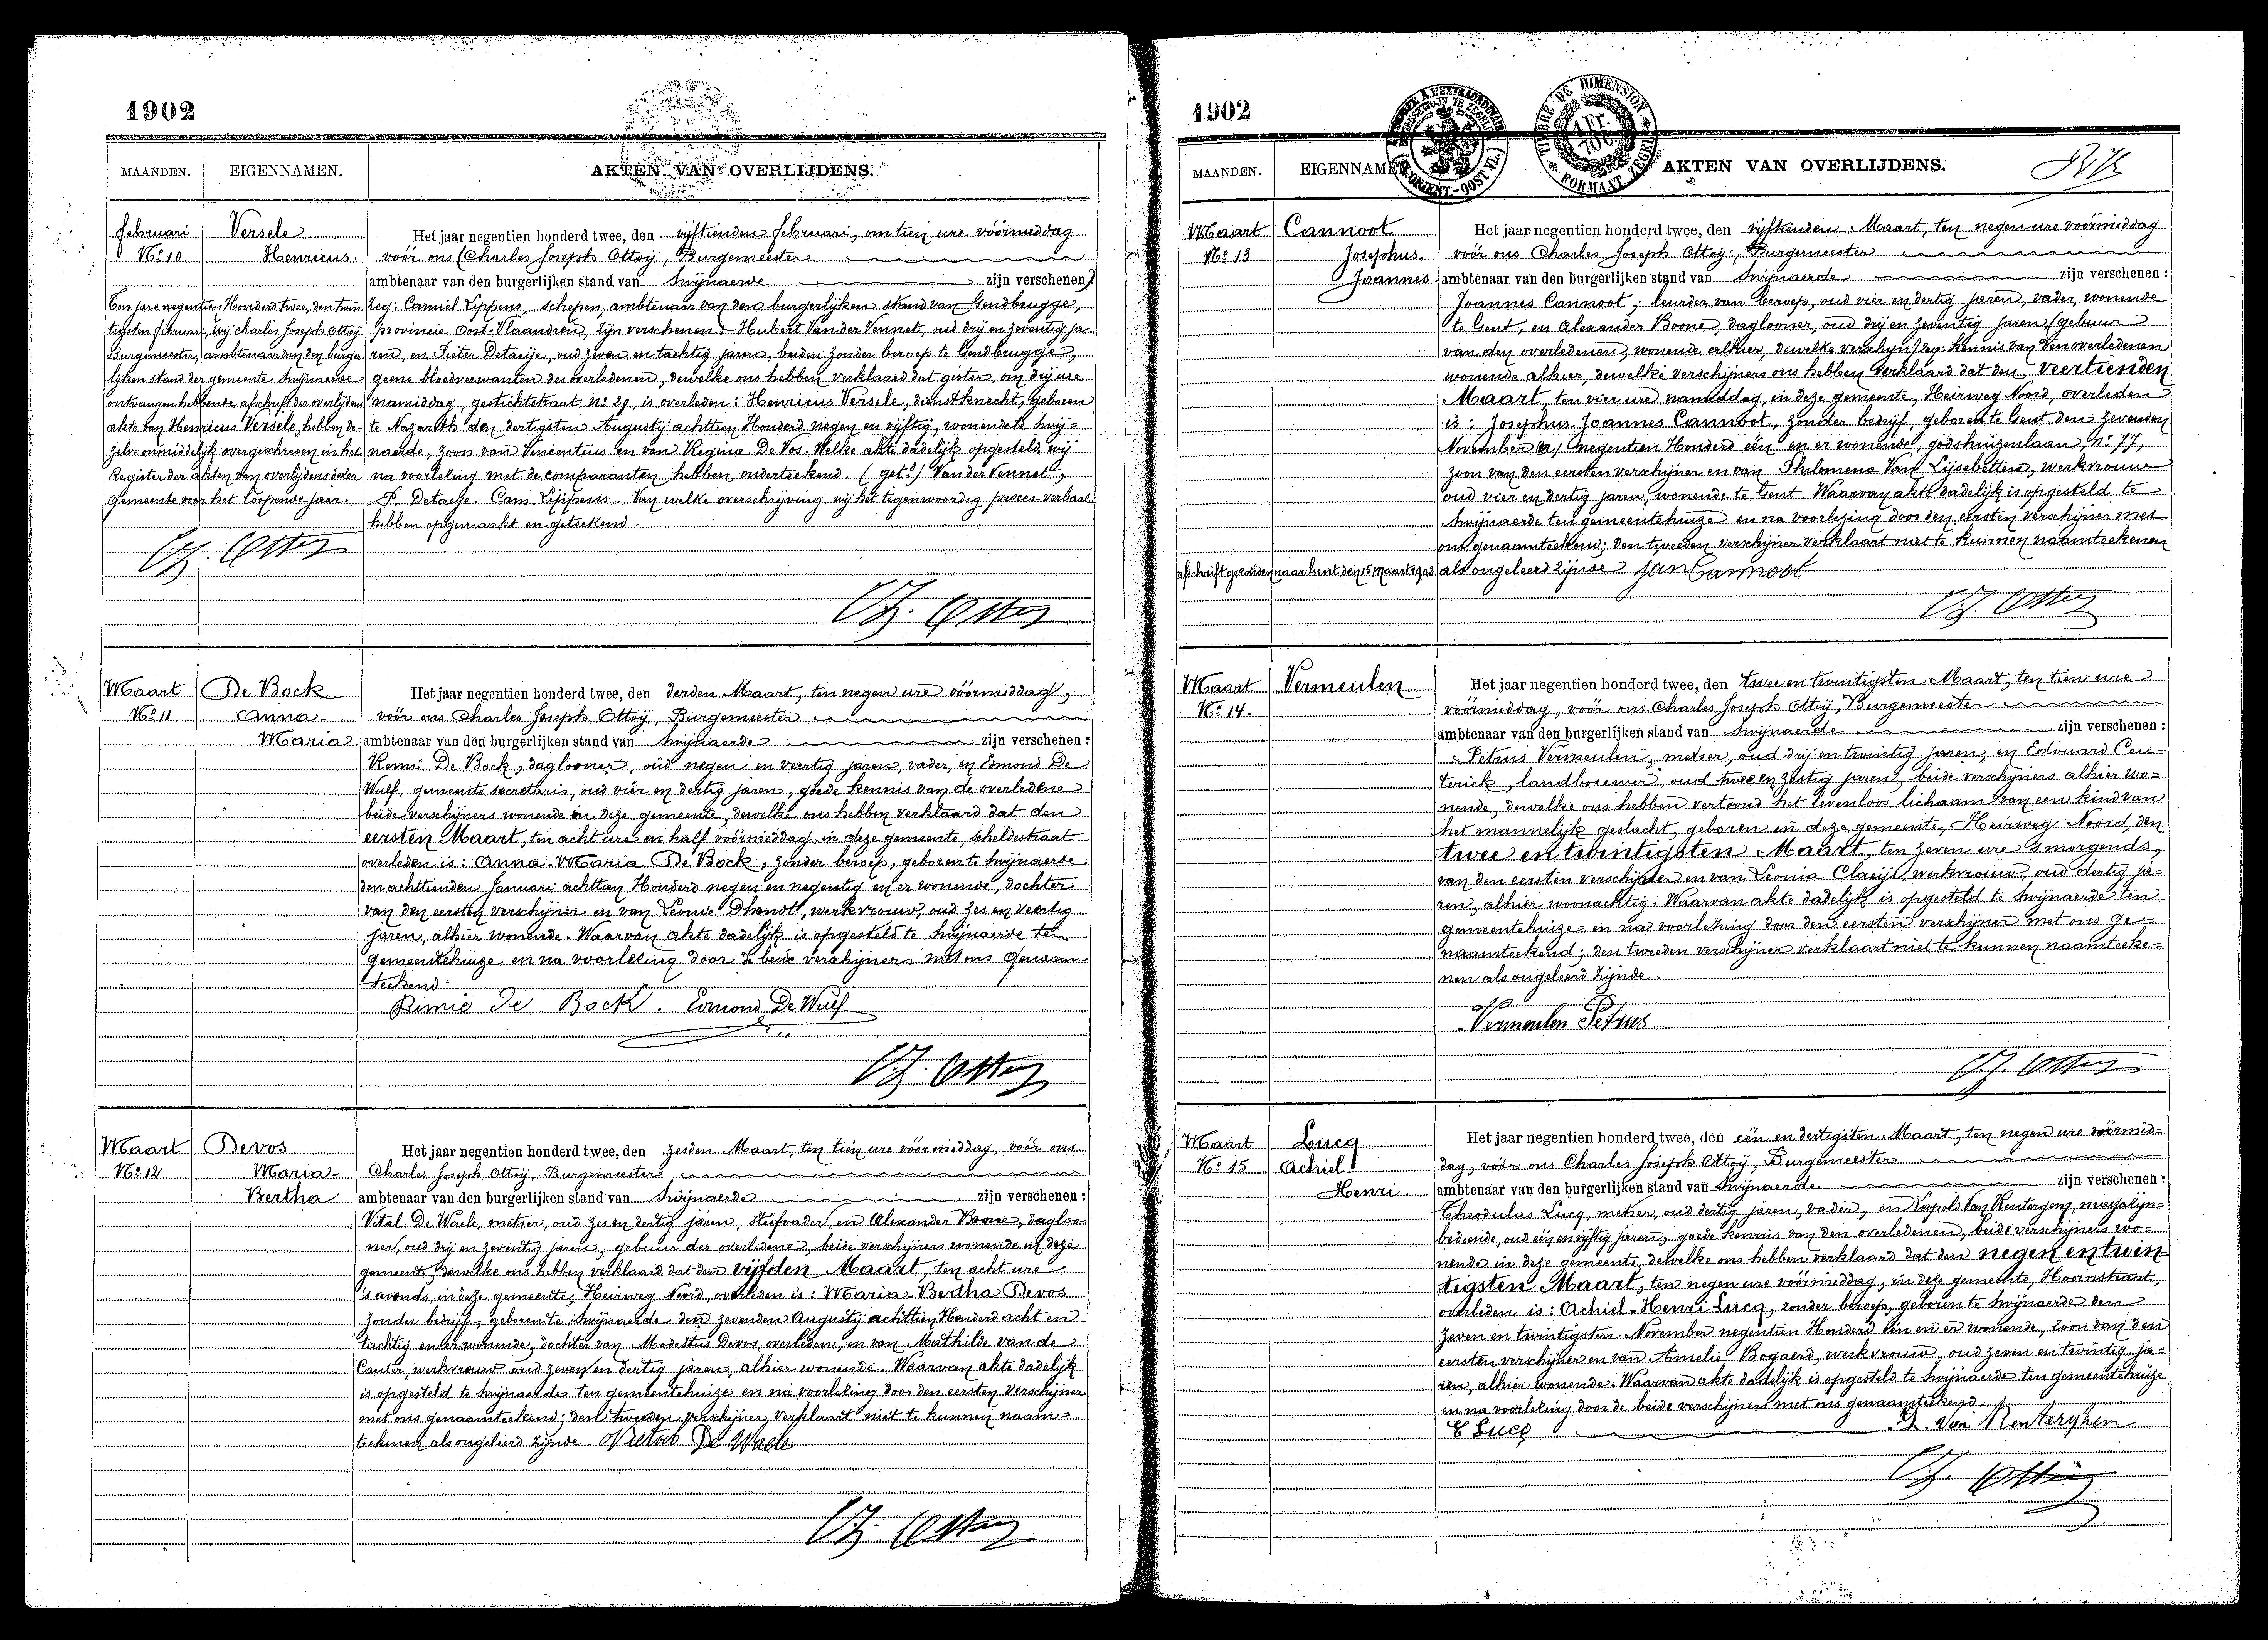 1902
MAANDEN. EIGENNAMEN. AKTEN VAN OVERLIJDENS.
Februari Versele Het jaar negentien honderd twee, den vijftienden Februari, om tien ure vóórmiddag
No 10 Henricus vóór ons (Charles Joseph Ottoÿ, Burgemeester
ambtenaar van den burgerlijken stand van Swijnaerde zijn verschenen)
Ten jare negentien Honderd twee, den twin-
tigsten Februari, wij Charles Joseph Ottoÿ
Burgemeester, ambtenaar van den burger-
lijken stand der gemeente Swijnaerde
ontvangen hebbende afschrift der overlijdens
akte van Henricus Versele, hebben de-
zelve onmiddelijk overgeschreven in het
Register der akten van overlijdens dezer
gemeente voor het loopende jaar.
Ch. Ottoÿ
zeg: Camiel Lippens, schepen, ambtenaar van den burgerlijken stand van Gendbrugge,
provincie Oost-Vlaandren, zijn verschenen: Hubert Van der Vennet, oud drij en zeventig ja-
ren, en Pieter Detaeije, oud zeven en tachtig jaren, beiden zonder beroep te Gendbrugge,
geene bloedverwanten des overledenen, dewelke ons hebben verklaard dat gister, om drij ure
namiddag, gestichtstraat no 29, is overleden: Henricus Versele, dienstknecht, geboren
te Nazareth den dertigsten Augustij achttien Honderd negen en vijftig, wonende te Swij-
naerde, zoon van Vincentius en van Regina De Vos. Welke akte dadelijk opgesteld, wij
na voorlezing met de comparanten, hebben onderteekend. (get.d) Van der Vennet,
P. Detaeije. Cam. Lippens. Van welke overschrijving wij het tegenwoordig proces-verbael
hebben opgemaakt en geteekend.
Ch. Ottoÿ
Maart De Bock Het jaar negentien honderd twee, den derden Maart, ten negen ure vóórmiddag,
No 11 Anna- vóór ons Charles Joseph Ottoÿ, Burgemeester
Maria ambtenaar van den burgerlijken stand van Swijnaerde zijn verschenen:
Remi De Bock, dagloner, oud negen en veertig jaren, vader, en Edmond De
Wulf, gemeente secretaris, oud vier en dertig jaren, goede kennis van de overledene
beide verschijners wonende in deze gemeente, dewelke ons hebben verklaard dat den
eersten Maart, ten acht ure en half vóórmiddag, in deze gemeente, scheldestraat
overleden is: Anna-Maria De Bock, zonder beroep, geboren te Swijnaerde
den achttienden Januari achttien Honderd negen en negentig en er wonende, dochter
van den eersten verschijner en van Leonie Dhondt, werkvrouw, oud zes en veertig
jaren, alhier wonende. Waarvan akte dadelijk is opgesteld te Swijnaerde ten
gemeentehuize en na voorlezing door de beide verschijners met ons genaam-
teekend.
Rimie De Bock. Edmond De Wulf
Ch. Ottoÿ
Maart Devos Het jaar negentien honderd twee, den zesden Maart, ten tien ure vóórmiddag, vóór ons
No 12 Maria- Charles Joseph Ottoÿ, Burgemeester
Bertha ambtenaar van den burgerlijken stand van Swijnaerde zijn verschenen:
Vital De Waele, metser, oud zes en dertig jaren, stiefvader, en Alexander Boone, dagloo-
ner, oud drij en zeventig jaren, gebuur der overledene, beide verschijners wonende in deze
gemeente, dewelke ons hebben verklaard dat den vijfden Maart, ten acht ure
's avonds, in deze gemeente, Heirweg Noord, overleden is: Maria-Bertha Devos
zonder bedrijf, geboren te Swijnaerde den zevenden Augustij achttien Honderd acht en
tachtig en er wonende, dochter van Modestus Devos, overleden, en van Mathilde van de
Cauter, werkvrouw oud zeven en dertig jaren, alhier wonende. Waarvan akte dadelijk
is opgesteld te Swijnaerde ten gemeentehuize en na voorlezing door den eersten verschijner
met ons genaamteekend; den tweeden verschijner verklaart niet te kunnen naam-
teekenen als ongeleerd zijnde. De Waele
Ch. Ottoÿ
1902
MAANDEN. EIGENNAMEN AKTEN VAN OVERLIJDENS.
TIMBRE DE DIMENSION
FORMAAT ZEGEL
Maart Cannoot Het jaar negentien honderd twee, den vijftienden Maart, ten negen ure voórmiddag
No 13 Josephus vóór ons Charles Joseph Ottoÿ, Burgemeester
Joannes ambtenaar van den burgerlijken stand van Swijnaerde zijn verschenen:
Joannes Cannoot, leurder van beroep, oud vier en dertig jaren, vader, wonende
te Gent, en Alexander Boone, daglooner, oud drij en zeventig jaren (gebuur
van den overledenen, wonende alhier, dewelke verschijn) zeg: kennis van den overledenen
wonende alhier, dewelke verschijners ons hebben verklaard dat den veertienden
Maart, ten vier ure namiddag, in deze gemeente, Heirweg Noord, overleden
is: Josephus Joannes Cannoot, zonder bedrijf, geboren te Gent den zevenden
November negentien Honderd één en er wonende, godshuizenlaan, no 77,
zoon van den eersten verschijner en van Philomena Van Lijsebetten, werkvrouw
oud vier en dertig jaren, wonende te Gent. Waarvan akte dadelijk is opgesteld te
Swijnaerde ten gemeentehuize en na voorlezing door den eersten verschijner met
ons genaamteekend; den tweeden verschijner verklaart niet te kunnen naamteekenen
afschrift gezonden naar Gent den 15 Maart 1902 als ongeleerd zijnde Jan Cannoot
Ch. Ottoÿ
Maart Vermeulen Het jaar negentien honderd twee, den twee en twintigsten Maart, ten tien ure
No 14. vóórmiddag, vóór ons Charles Joseph Ottoÿ, Burgemeester
ambtenaar van den burgerlijken stand van Swijnaerde zijn verschenen:
Petrus Vermeulen, metser, oud drij en twintig jaren, en Edouard Ceu-
terick, landbouwer, oud twee en zestig jaren, beide verschijners alhier wo-
nende, dewelke ons hebben vertoond het levenloos lichaam van een kind van
het mannelijk geslacht, geboren in deze gemeente, Heirweg Noord, den
twee en twintigsten Maart, ten zeven ure 's morgends,
van den eersten verschijner en van Leonia Claeijs, werkvrouw, oud dertig ja-
ren, alhier woonachtig. Waarvan akte dadelijk is opgesteld te Swijnaerde ten
gemeentehuize en na voorlezing door den eersten verschijner met ons ge-
naamteekend; den tweeden verschijner verklaart niet te kunnen naamteeke-
nen als ongeleerd zijnde.
Vermeulen Petrus
Ch. Ottoÿ
Maart Lucq Het jaar negentien honderd twee, den één en dertigsten Maart, ten negen ure vóórmid-
No 15 Achiel- dag, vóór ons Charles Joseph Ottoÿ, Burgemeester
Henri ambtenaar van den burgerlijken stand van Swijnaerde zijn verschenen:
Theodulus Lucq, metser, oud dertig jaren, vader, en Leopold Van Rentergem, magazijn-
bediende, oud één en vijftig jaren, goede kennis van den overledenen, beide verschijners wo-
nende in deze gemeente, dewelke ons hebben verklaard dat den negen en twin-
tigsten Maart, ten negen ure vóórmiddag, in deze gemeente, Hoornstraat,
overleden is: Achiel-Henri Lucq, zonder beroep, geboren te Swijnaerde den
zeven en twintigsten November negentien Honderd één en er wonende, zoon van den
eersten verschijner en van Amelie Bogaerd, werkvrouw, oud zeven en twintig ja-
ren, alhier wonende. Waarvan akte dadelijk is opgesteld te Swijnaerde ten gemeentehuize
en na voorlezing door de beide verschijners met ons genaamteekend.
Lucq L. Van Renterghem
Ch. Ottoÿ